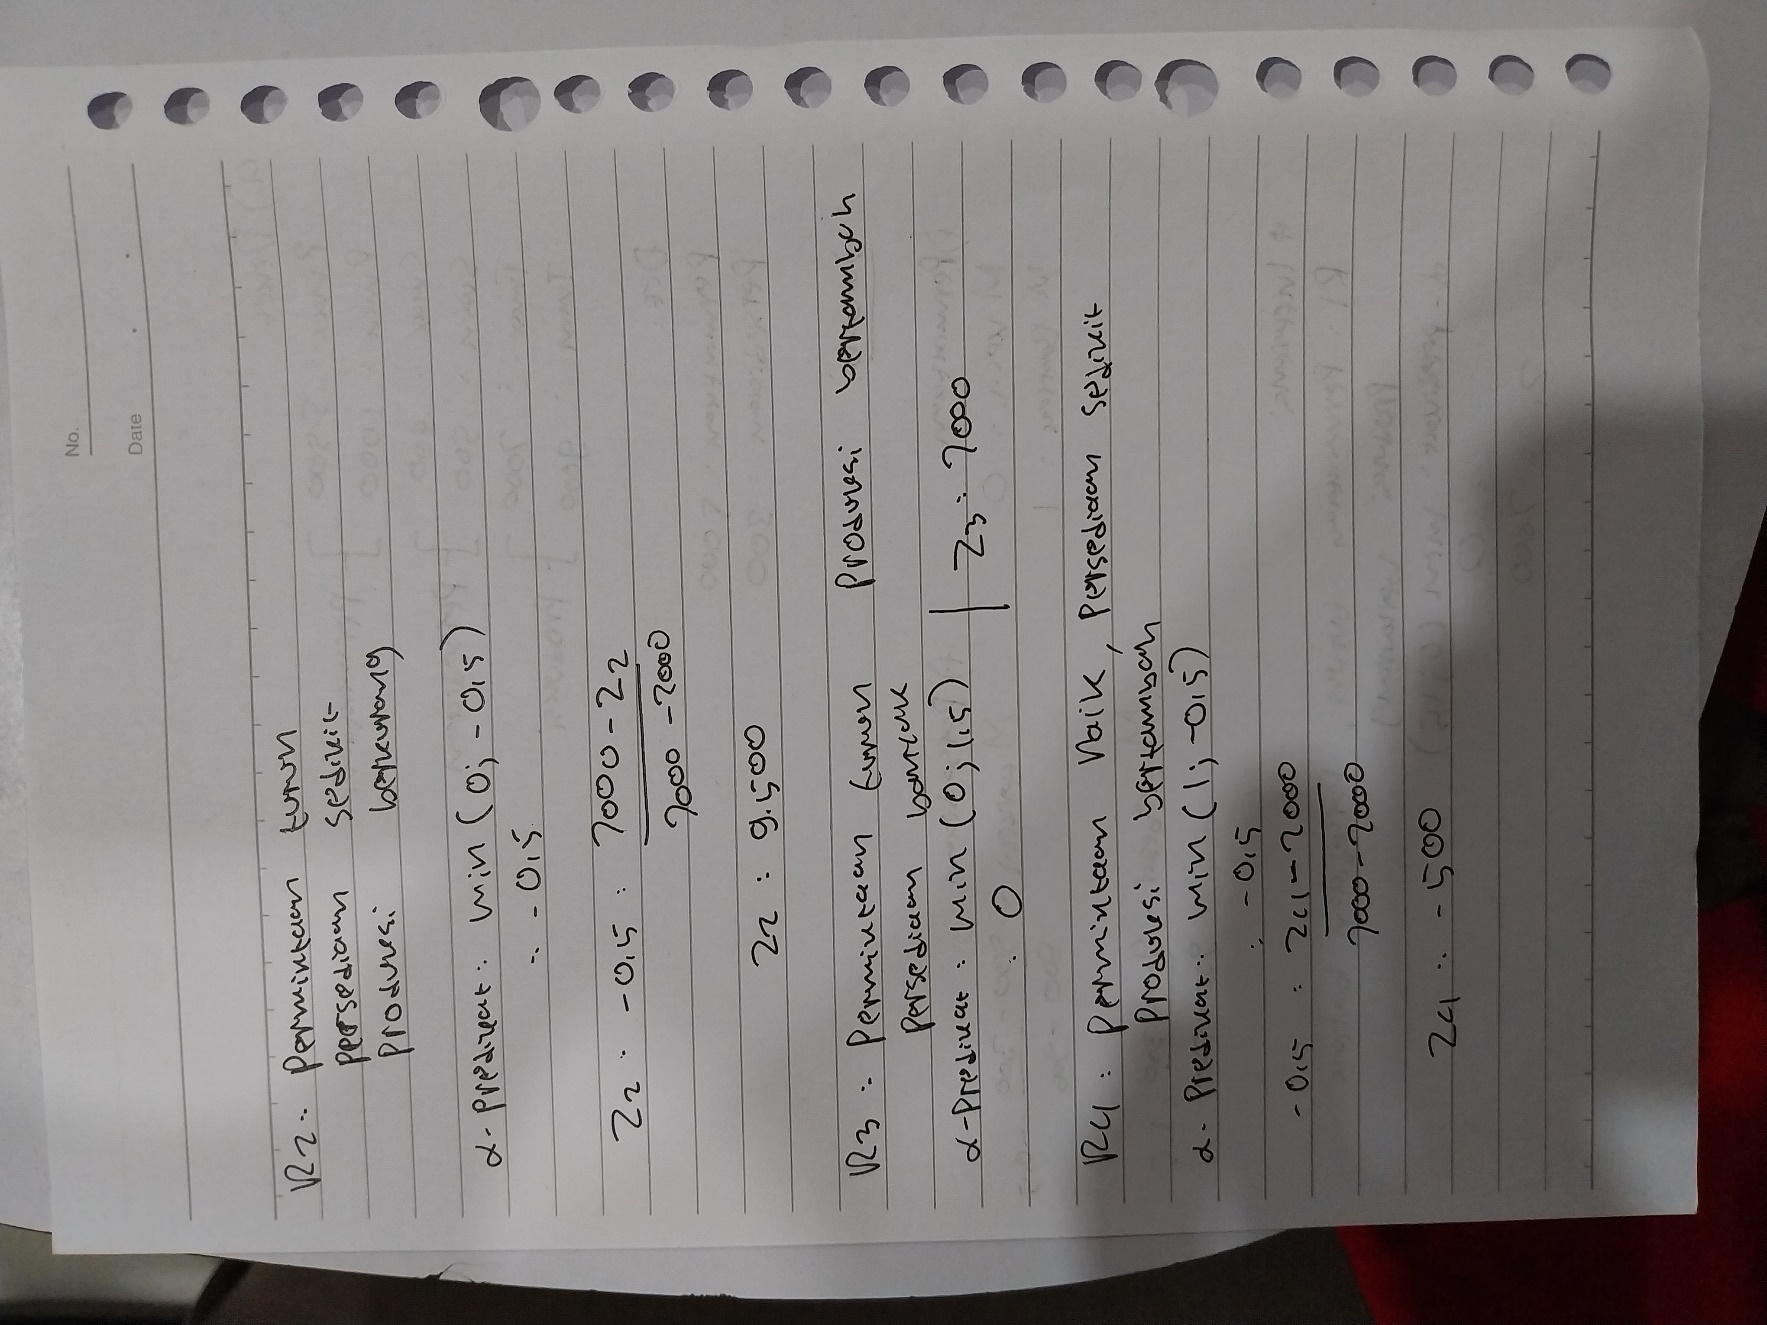 No.
Date
R2 : Permintaan turun
persediaan sedikit
Produksi berkurang
α-Predikat : min (0; -0,5)
: -0,5
Z2 : -0,5 : 7000 - Z2
7000 - 2000
Z2 : 9.500
R3 : Permintaan turun Produksi bertambah
Persediaan banyak
α-Predikat : min (0; 1,5) | Z3 : 7000
: 0
R4 : Permintaan naik, Persediaan sedikit
Produksi bertambah
α-Predikat : min (1; -0,5)
: -0,5
-0,5 : Z4 - 2000
7000 - 2000
Z4 : -500